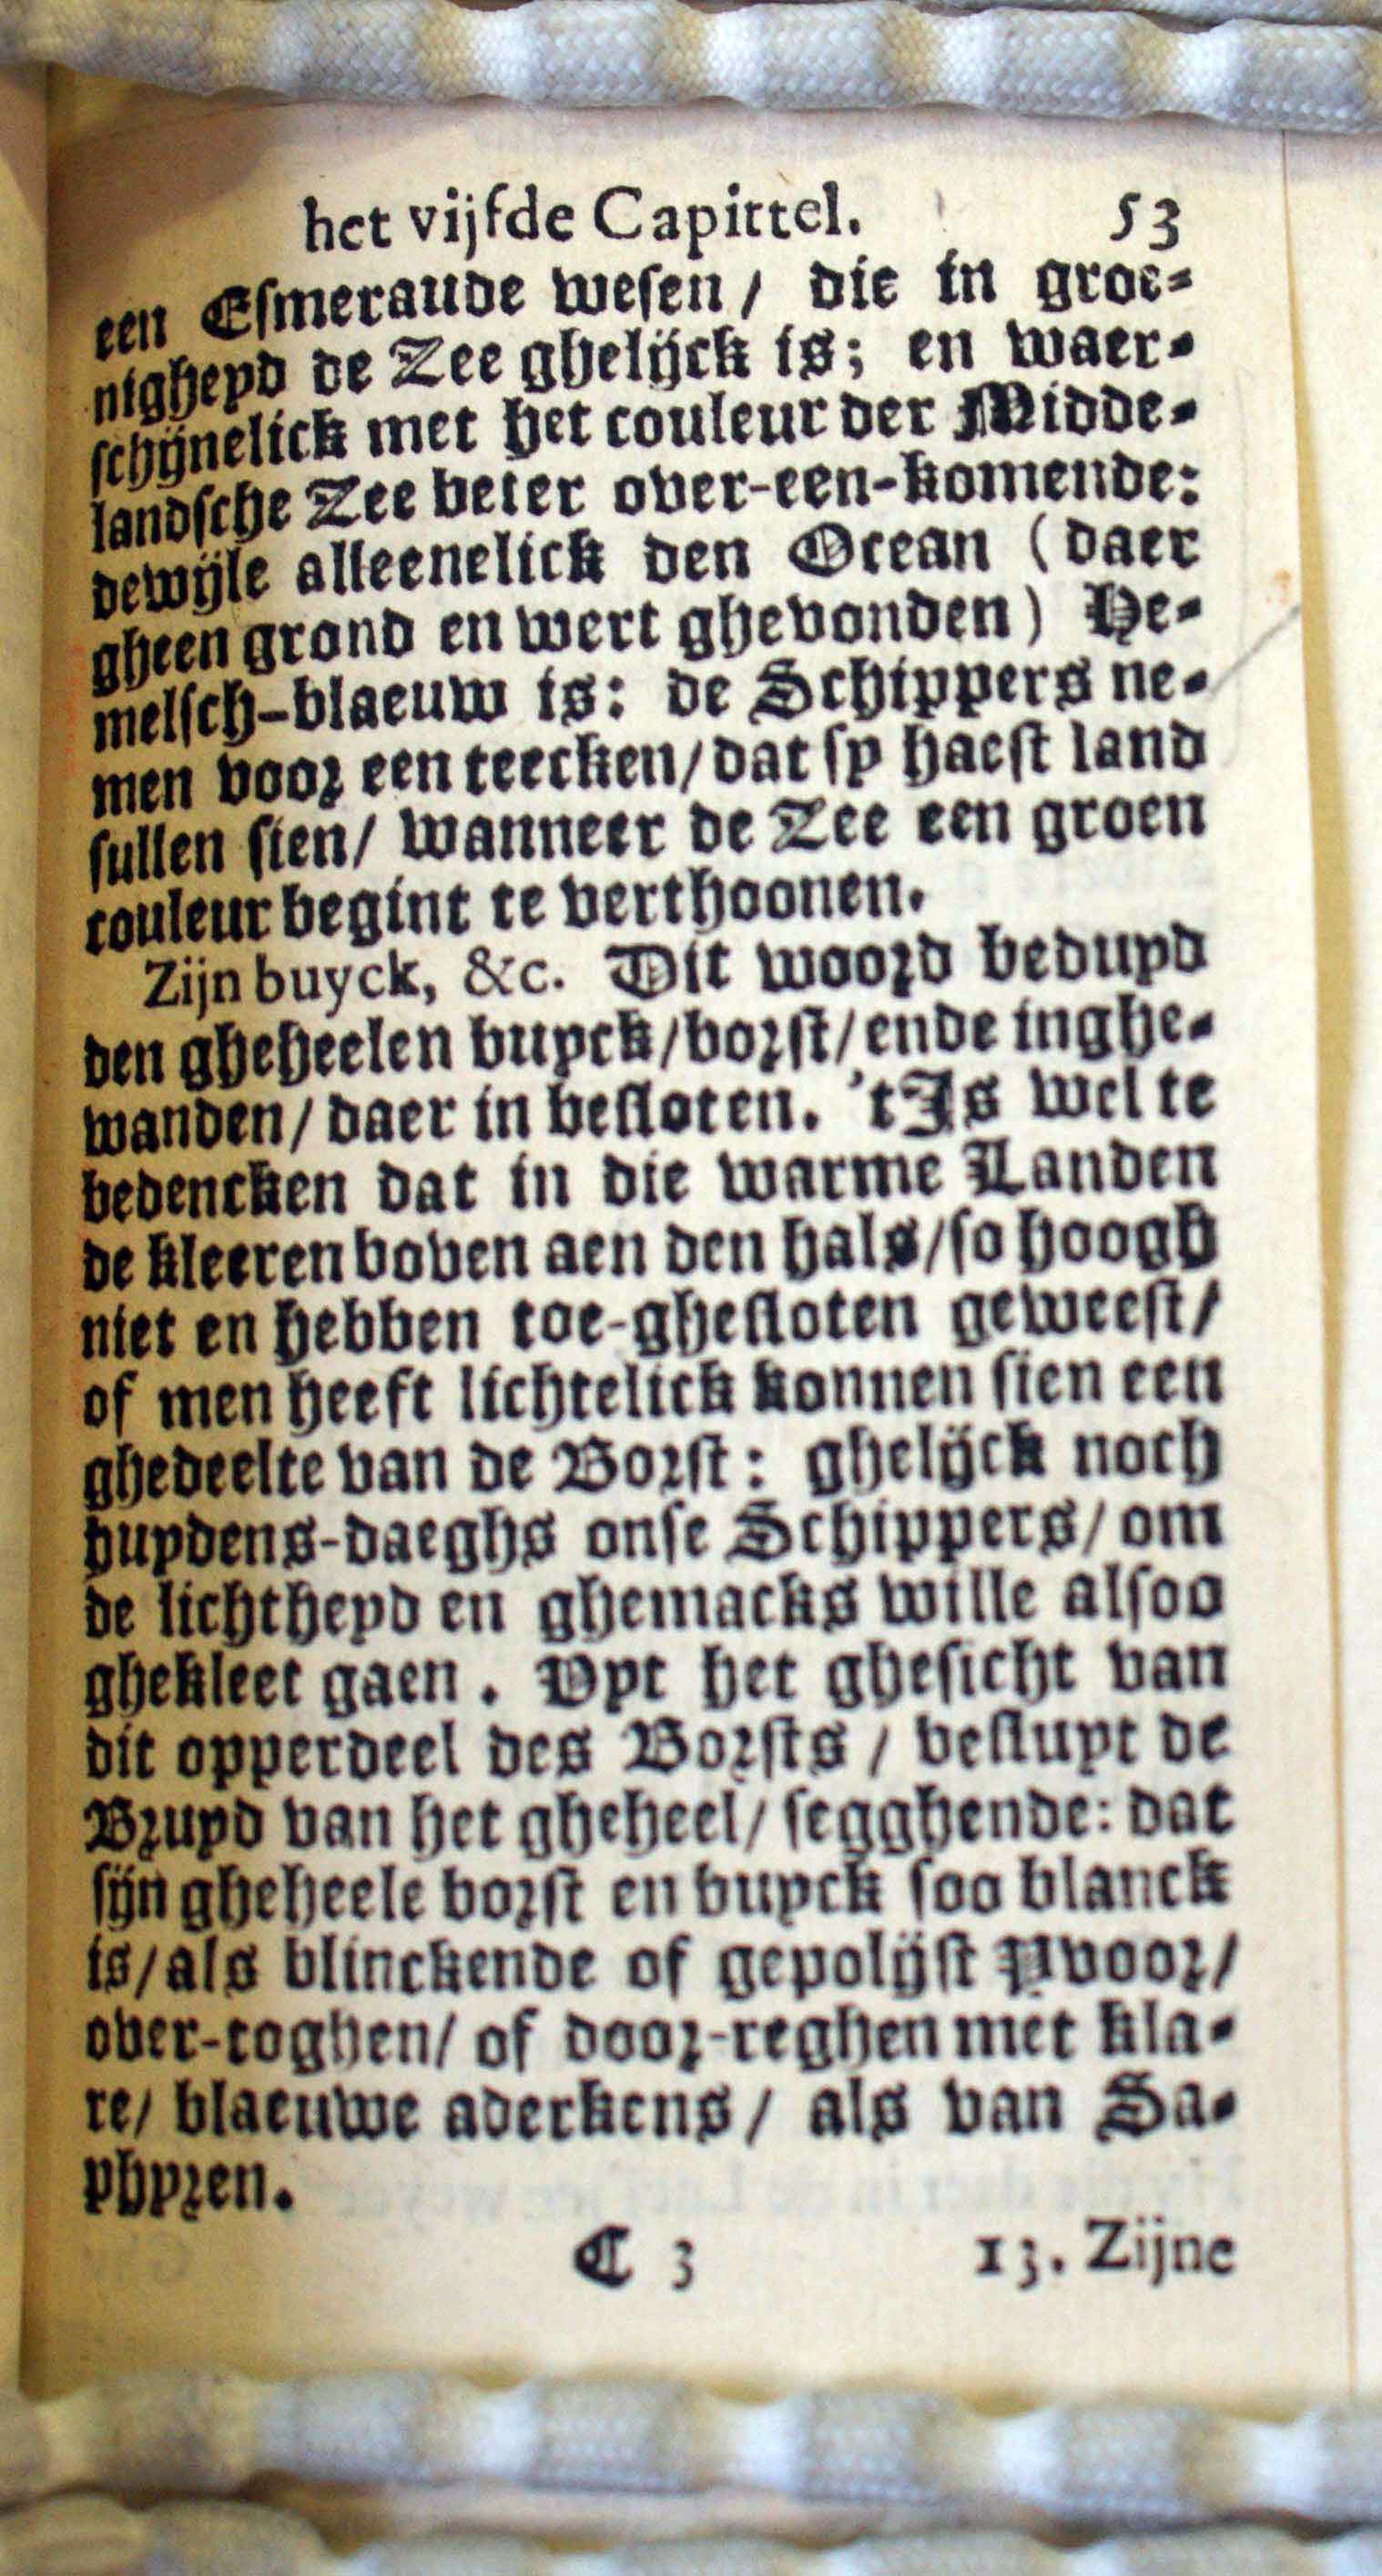 het vijfde Capittel. 53
een Esmeraude wesen / die in groe-
nigheyd de Zee ghelijck is; en waer-
schijnelick met het couleur der Midde-
landsche Zee beter over-een-komende:
dewijle alleenelick den Ocean (daer
gheen grond en wert ghevonden) He-
melsch-blaeuw is: de Schippers ne-
men voor een teecken/ dat sy haest land
sullen sien/ wanneer de Zee een groen
couleur begint te verthoonen.
Zijn buyck, &c. Dit woord beduyd
den gheheelen buyck/ borst/ ende inghe-
wanden/ daer in besloten. 't Is wel te
bedencken dat in die warme Landen
de kleeren boven aen den hals/ so hoogh
niet en hebben toe-ghesloten geweest/
of men heeft lichtelick konnen sien een
ghedeelte van de Borst: ghelijck noch
huydens-daeghs onse Schippers/ om
de lichtheyd en ghemacks wille alsoo
ghekleet gaen. Uyt het ghesicht van
dit opperdeel des Borsts / besluyt de
Bruyd van het gheheel/ segghende: dat
sijn gheheele borst en buyck soo blanck
is/ als blinckende of gepolijst Yvoor/
over-toghen/ of door-reghen met kla-
re/ blaeuwe aderkens/ als van Sa-
phyren.
C 3 13. Zijne